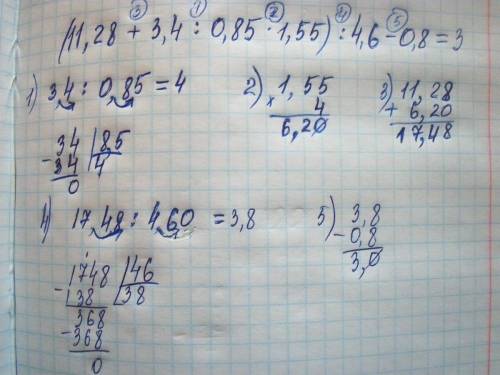 ③ ① ② ④ ⑤
(11,28 + 3,4 : 0,85 · 1,55) : 4,6 - 0,8 = 3
1) 3,4 : 0,85 = 4
34 | 8,5
- 34 | 4
0
2) 1,55
× 4
6,20
3) 11,28
+ 6,20
17,48
4) 17,48 : 4,60 = 3,8
- 1748 | 46
138 | 38
368
- 368
0
5) 3,8
- 0,8
3,0